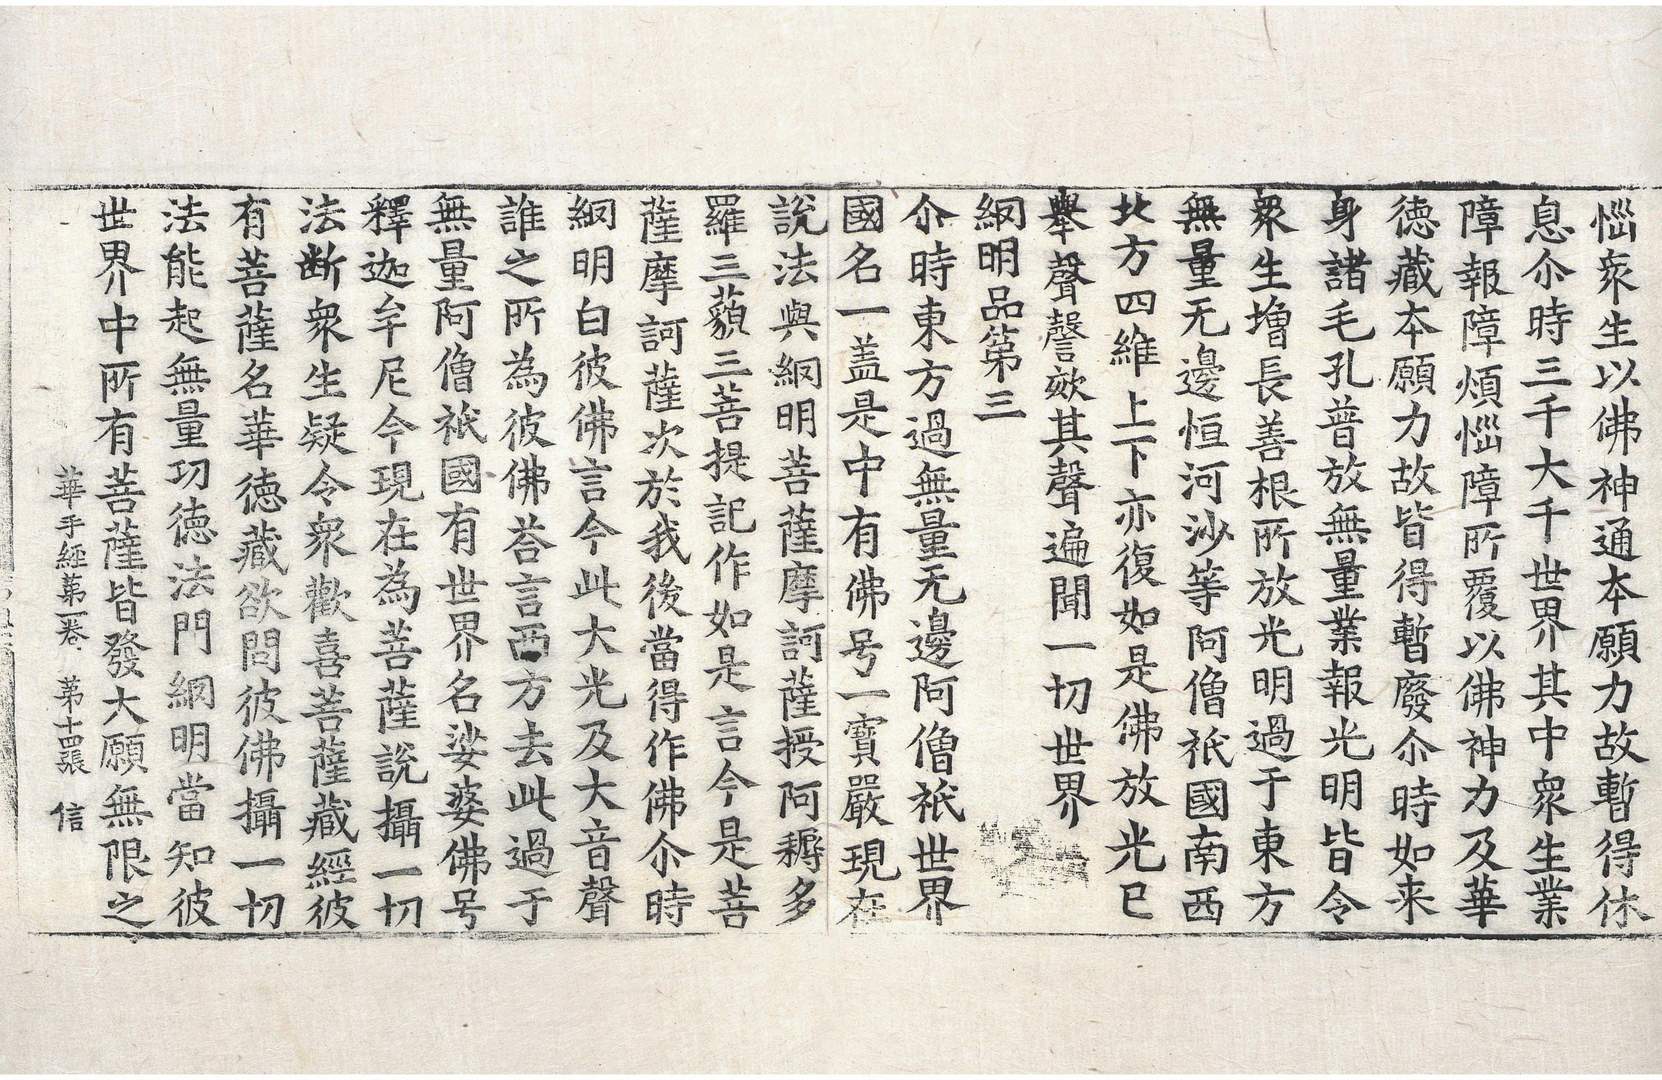 惱衆生以佛神通本願力故暫得休
息尒時三千大千世界其中衆生業
障報障煩惱障所覆以佛神力及華
德藏本願力故皆得暫廢尒時如来
身諸毛孔普放無量業報光明皆令
衆生増長善根所放光明過于東方
無量无邊恒河沙等阿僧祇國南西
北方四維上下亦復如是佛放光已
舉聲謦欬其聲遍聞一切世界
網明品第三
尒時東方過無量无邊阿僧祇世界
國名一盖是中有佛号一寶嚴現在
說法與網明菩薩摩訶薩授阿耨多
羅三藐三菩提記作如是言今是菩
薩摩訶薩次於我後當得作佛尒時
網明白彼佛言今此大光及大音聲
誰之所為彼佛荅言西方去此過于
無量阿僧祇國有世界名娑婆佛号
釋迦牟尼今現在為菩薩說攝一切
法断衆生疑令衆歡喜菩薩藏經彼
有菩薩名華德藏欲問彼佛攝一切
法能起無量功德法門網明當知彼
世界中所有菩薩皆發大願無限之
華手經苐一卷 苐十四張 信